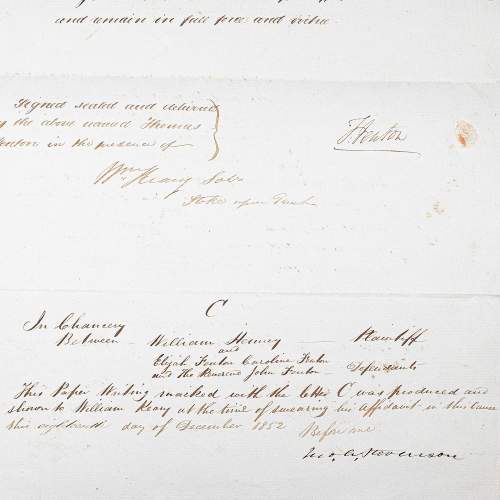 and remain in full force and virtue.
Signed sealed and delivered
by the above named Thomas
Fenton in the presence of
Wm Keary Solr
Stoke upon Trent
T Fenton
C
In Chancery
Between William Plaintiff
and
Elijah Fenton Caroline Fenton
and The Reverend John Fenton Defendants
This Paper Writing marked with the letter C was produced and
shown to William Keary at the time of swearing his affidavit in this cause
this eighteenth day of December 1852
Before me
Stevenson